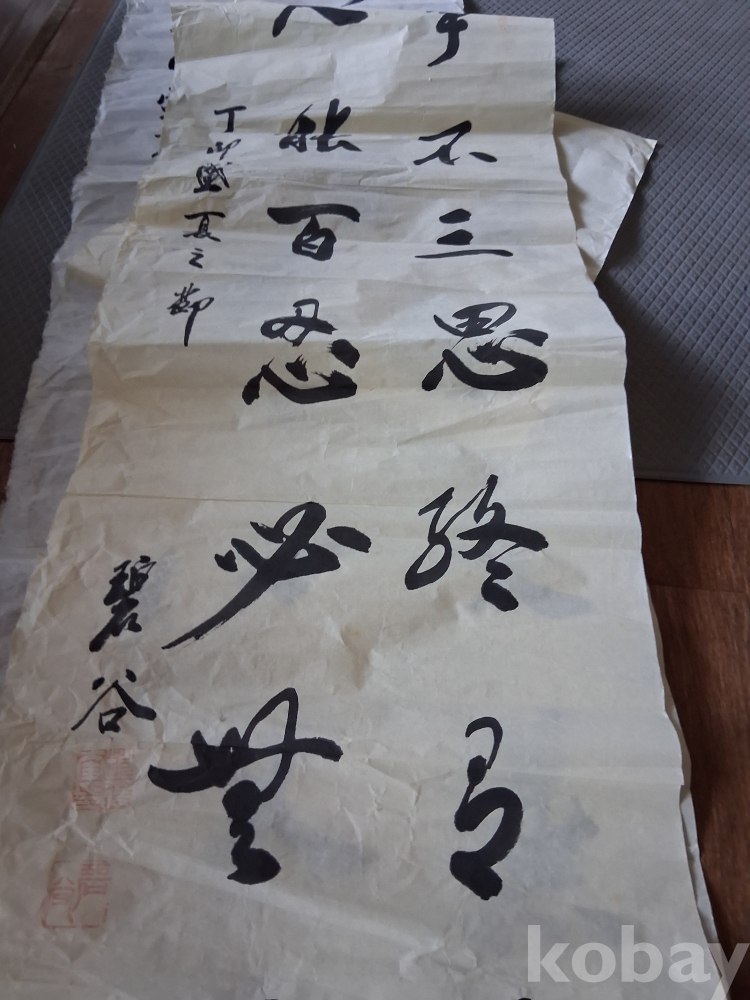 事不三思終有
人能百忍必無
丁卯盛夏之節
碧谷
kobay